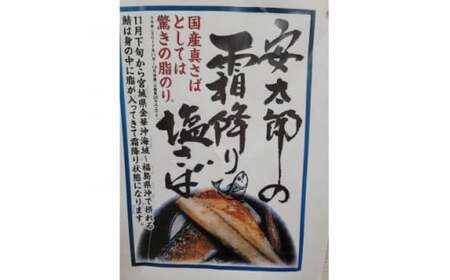 安太郎の
霜降り
塩さば
国産真さば
としては
驚きの脂のり。
11月下旬から宮城県金華沖海域～福島県沖で獲れる
鯖は身の中に脂が入ってきて霜降り状態になります。